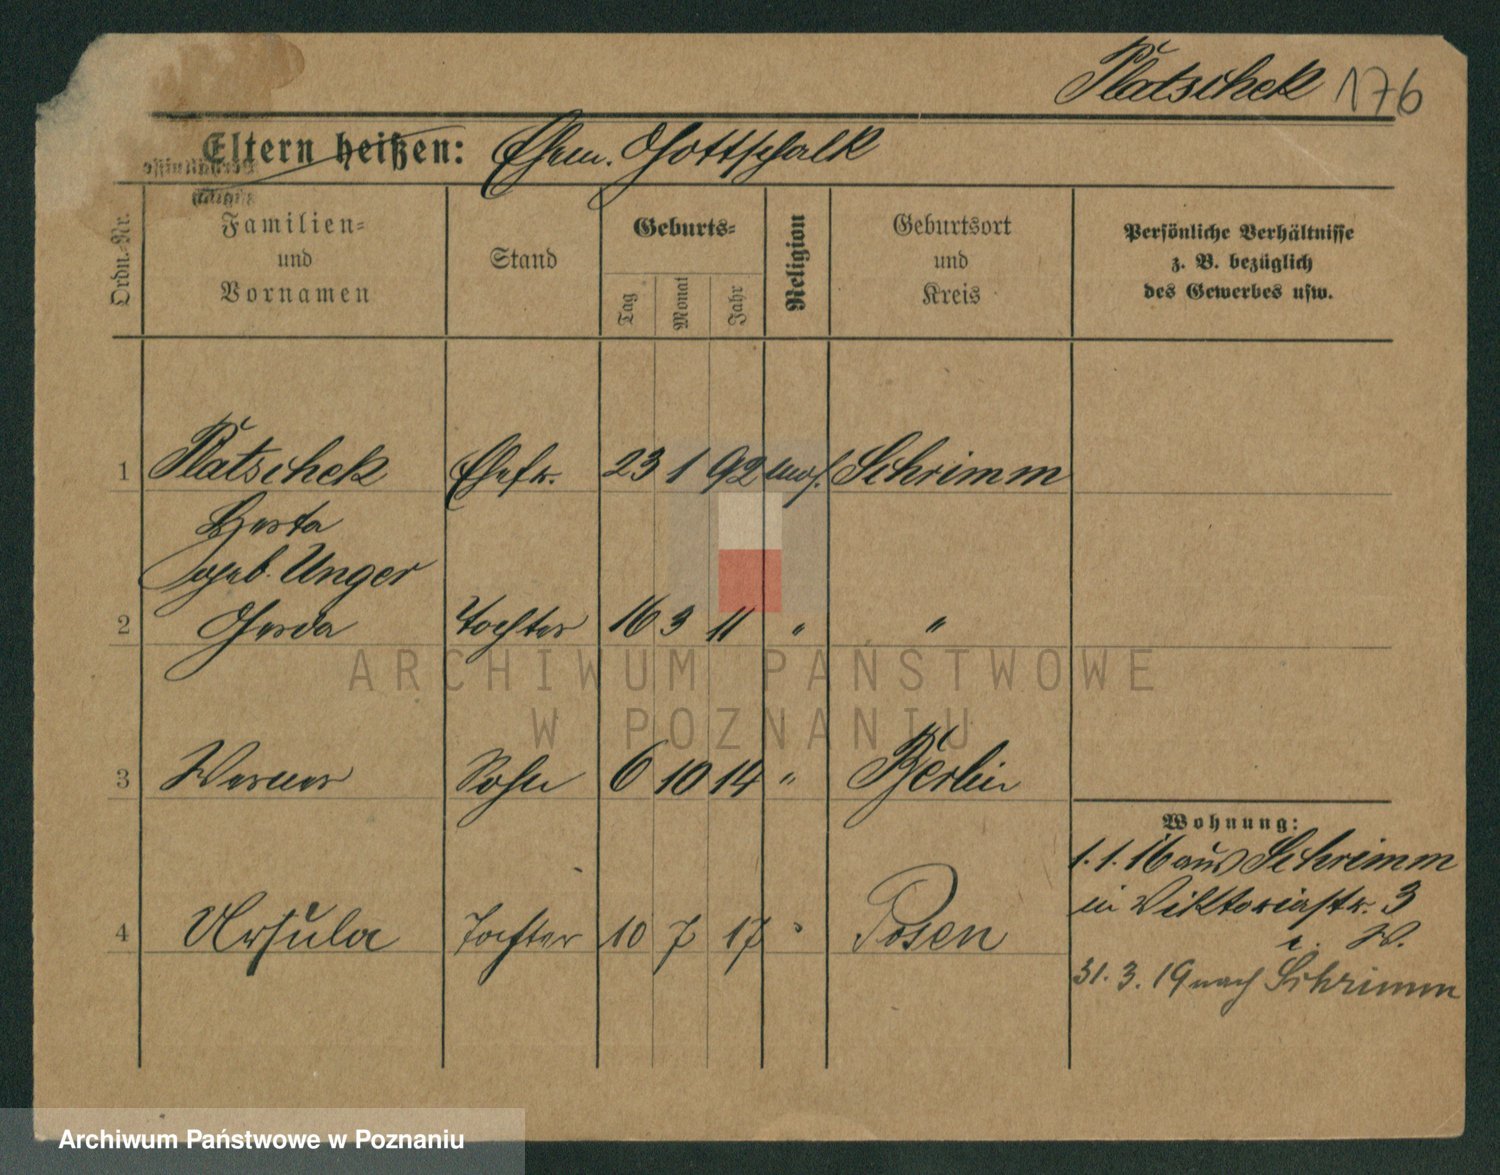 Platschek 176
Eltern heißen: Ehem. Gottschalk
Ordn.-Nr.
Familien-
und
Vornamen
Stand
Geburts-
Tag
Monat
Jahr
Religion
Geburtsort
und
Kreis
Persönliche Verhältnisse
z. B. bezüglich
des Gewerbes usw.
1 Platschek Ehefr. 23 1 92 mos. Schrimm
Herta
geb. Unger
2 Gerda Tochter 16 3 11 " "
ARCHIWUM PAŃSTWOWE
W POZNANIU
3 Werner Sohn 6 10 14 " Berlin
Wohnung:
1.1.16 aus Schrimm
in Viktoriastr. 3
4 Ursula Tochter 10 7 17 " Posen
31.3.19 nach Schrimm
Archiwum Państwowe w Poznaniu